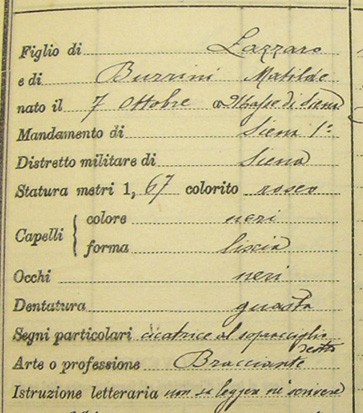 Figlio di Lazzaro
e di Burrini Matilde
nato il 7 Ottobre a Masse di Siena
Mandamento di Siena 1º
Distretto militare di Siena
Statura metri 1, 67 colorito roseo
Capelli { colore neri
forma liscia
Occhi neri
Dentatura guasta
Segni particolari cicatrice al sopracciglio
Arte o professione Bracciante
Istruzione letteraria non sa leggere nè scrivere